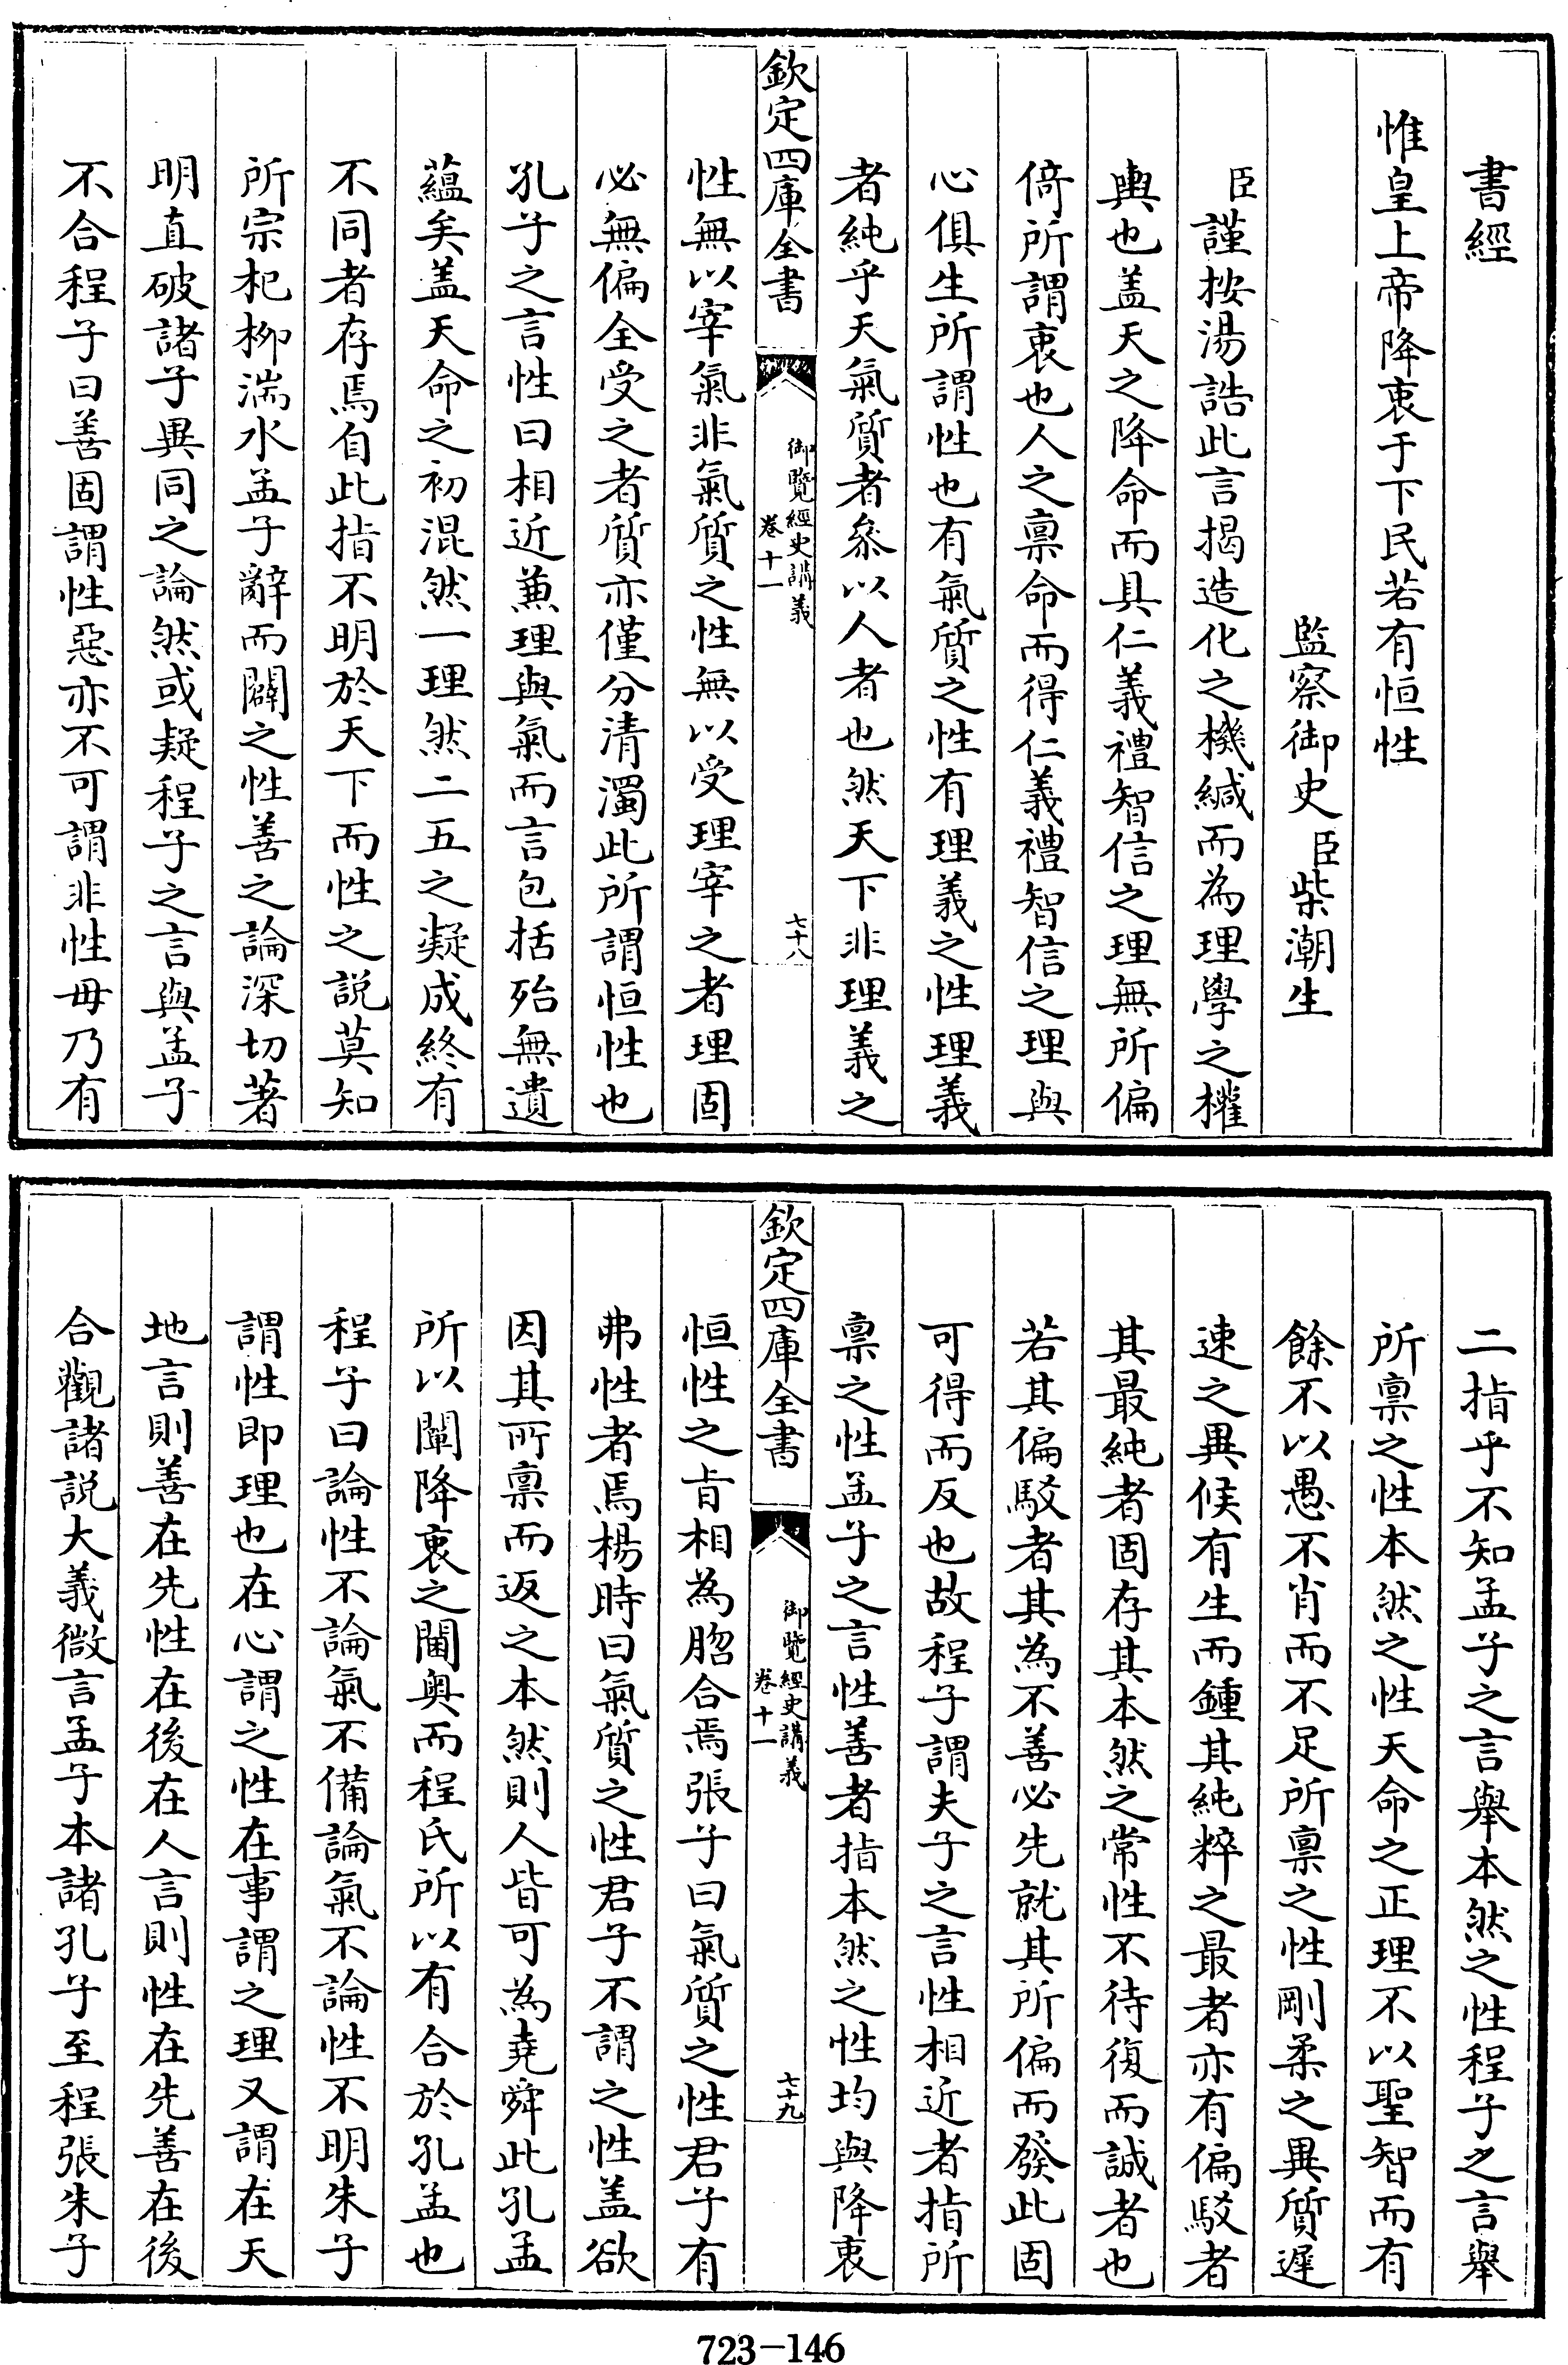 書經
惟皇上帝降衷于下民若有恒性
監察御史臣柴潮生
臣謹按湯誥此言揭造化之機緘而為理學之權
輿也盖天之降命而具仁義禮智信之理無所偏
倚所謂衷也人之禀命而得仁義禮智信之理與
心俱生所謂性也有氣質之性有理義之性理義
者純乎天氣質者叅以人者也然天下非理義之
欽定四庫全書
御覽經史講義
卷十一
七十八
性無以宰氣非氣質之性無以受理宰之者理固
必無偏全受之者質亦僅分清濁此所謂恒性也
孔子之言性曰相近兼理與氣而言包括殆無遺
蘊矣盖天命之初混然一理然二五之凝成終有
不同者存焉自此指不明於天下而性之説莫知
所宗杞柳湍水孟子辭而闢之性善之論深切著
明直破諸子異同之論然或疑程子之言與孟子
不合程子曰善固謂性惡亦不可謂非性毋乃有
二指乎不知孟子之言舉本然之性程子之言舉
所禀之性本然之性天命之正理不以聖智而有
餘不以愚不肖而不足所禀之性剛柔之異質遲
速之異候有生而鍾其純粹之最者亦有偏駁者
其最純者固存其本然之常性不待復而誠者也
若其偏駁者其為不善必先就其所偏而發此固
可得而反也故程子謂夫子之言性相近者指所
禀之性孟子之言性善者指本然之性均與降衷
欽定四庫全書
御覽經史講義
卷十一
七十九
恒性之㫖相為脗合焉張子曰氣質之性君子有
弗性者焉楊時曰氣質之性君子不謂之性盖欲
因其所禀而返之本然則人皆可為堯舜此孔孟
所以闡降衷之閫奥而程氏所以有合於孔孟也
程子曰論性不論氣不備論氣不論性不明朱子
謂性即理也在心謂之性在事謂之理又謂在天
地言則善在先性在後在人言則性在先善在後
合觀諸説大義微言孟子本諸孔子至程張朱子
723-146